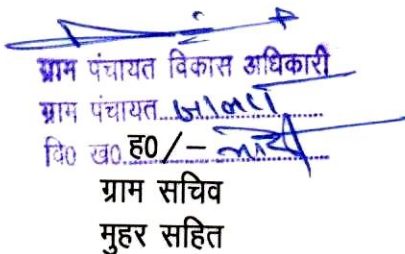 ग्राम पंचायत विकास अधिकारी
ग्राम पंचायत
वि० ख० ह०/–
ग्राम सचिव
मुहर सहित